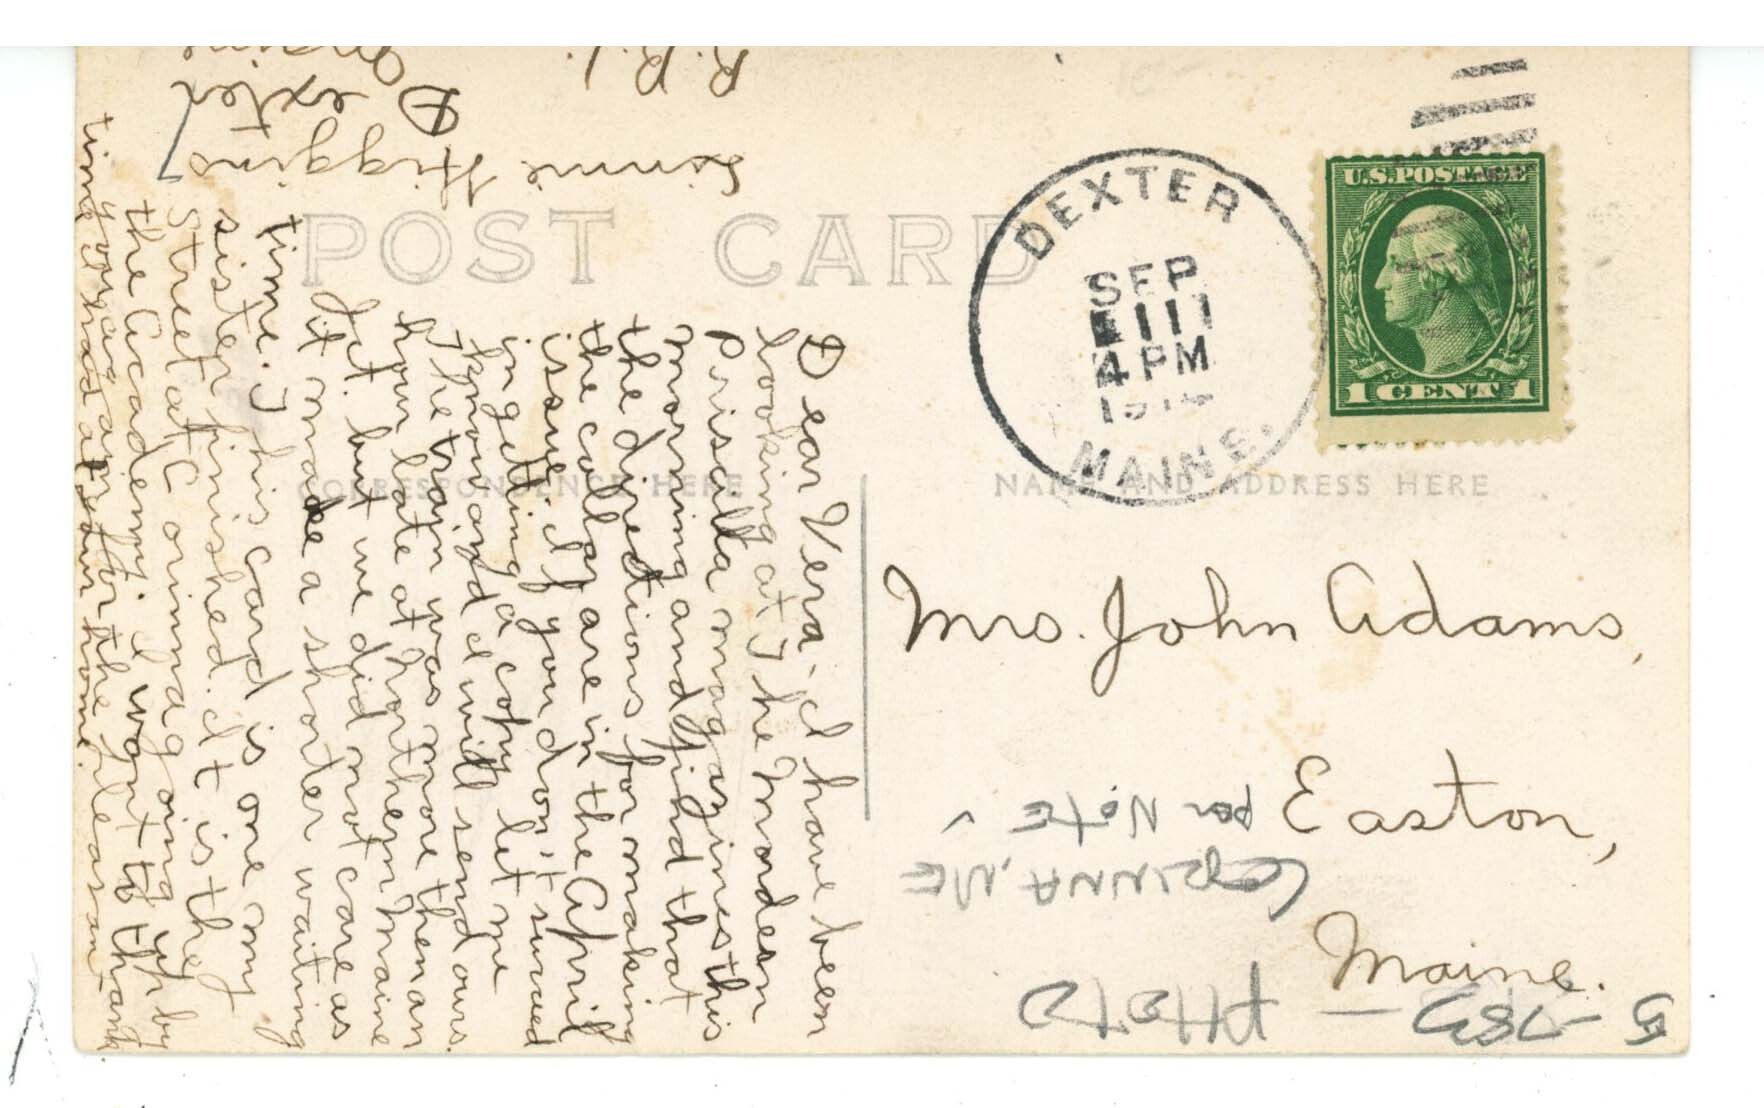 POST CARD
CORRESPONDENCE HERE
NAME AND ADDRESS HERE
U.S. POSTAGE
1 CENT 1
DEXTER
SEP
11
4 PM
1914
MAINE.
Mrs. John Adams,
Easton,
Maine.
Dear Vera - I have been
looking at The Modern
Priscilla magazines this
morning and find that
the directions for making
the collar are in the April
issue. If you don't succeed
in getting a copy let me
know and I will send ours.
The train was more then an
hour late at Northern Maine
Jct. but we did not care as
it made a shorter waiting
time. This card is one my
sister finished. It is the
Street at Corinna going up by
the Academy. I want to thank
you again for the pleasant
time I had at your home.
Linnie Higgins
Dexter
Maine
R.R.1.
CORINNA, ME
per NOTE
PHOTO